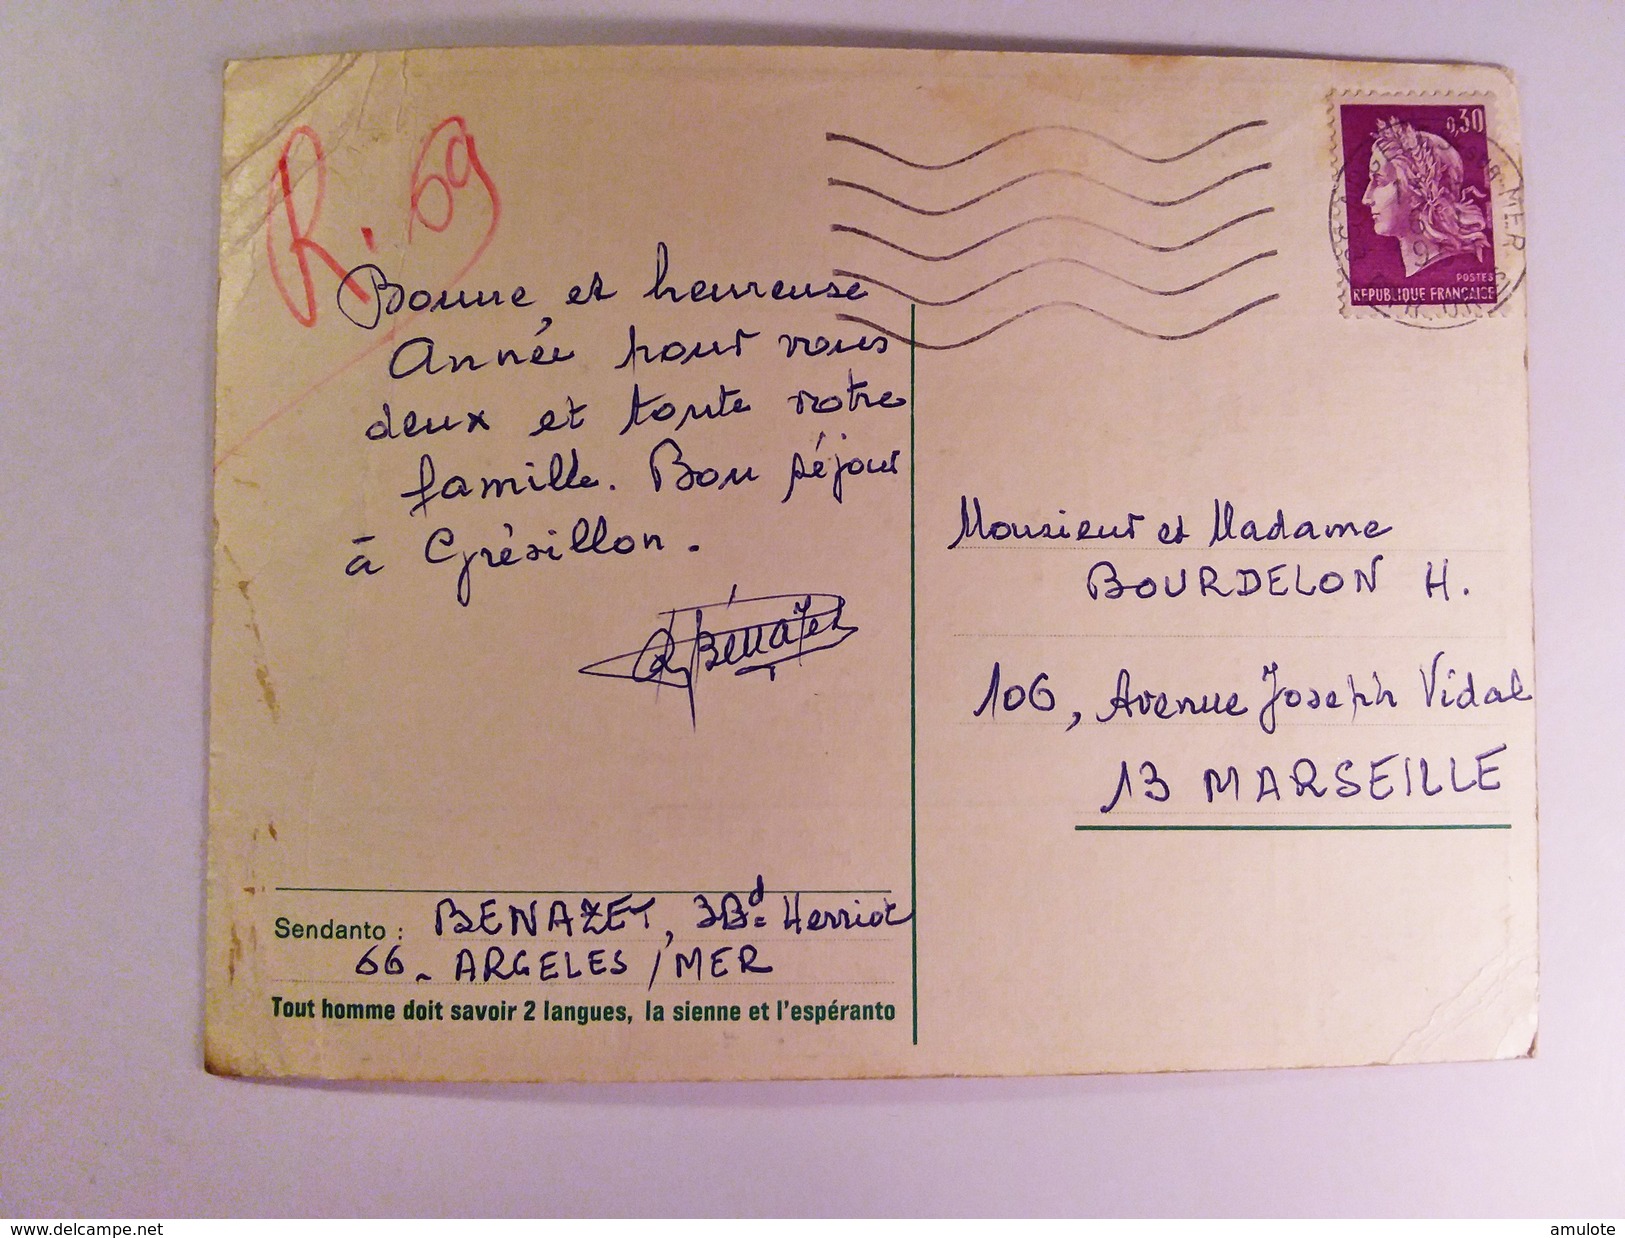 R. 69
Bonne et heureuse
Année pour vous
deux et toute votre
famille. Bon séjour
à Grésillon.
Bénazet
Sendanto : BENAZET, 3 Bd Herriot
66 - ARGELES / MER
Tout homme doit savoir 2 langues, la sienne et l'espéranto
0,30
POSTES
REPUBLIQUE FRANÇAISE
MER
Monsieur et Madame
BOURDELON H.
106, Avenue Joseph Vidal
13 MARSEILLE
www.delcampe.net
amulote